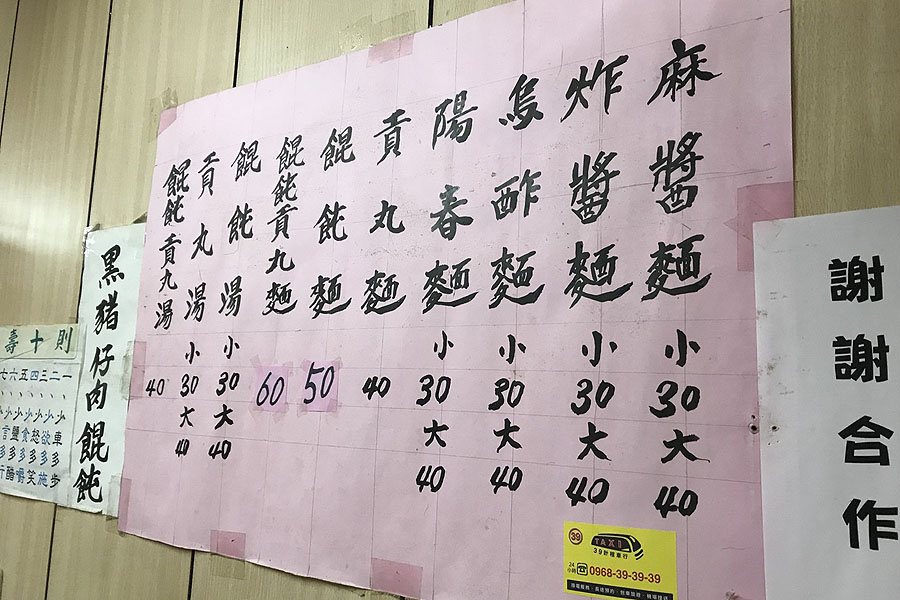 麻醬麵 小30 大40
炸醬麵 小30 大40
烏酢麵 小30 大40
陽春麵 小30 大40
貢丸麵 40
餛飩麵 50
餛飩貢丸麵 60
餛飩湯 小30 大40
貢丸湯 小30 大40
餛飩貢丸湯 40
謝謝合作
黑豬仔肉餛飩
壽十則
一、少車多步
二、少欲多施
三、少怒多笑
四、少食多嚼
五、少鹽多醋
六、少言多行
39
TAXI
39計程車行
24小時
0968-39-39-39